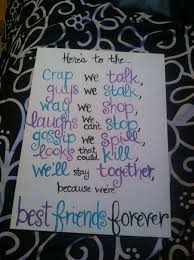 Here's to the...
crap we talk,
guys we stalk,
way we shop,
laughs we can't stop
gossip we spill,
looks that could kill,
we'll stay together,
because we're
best friends forever